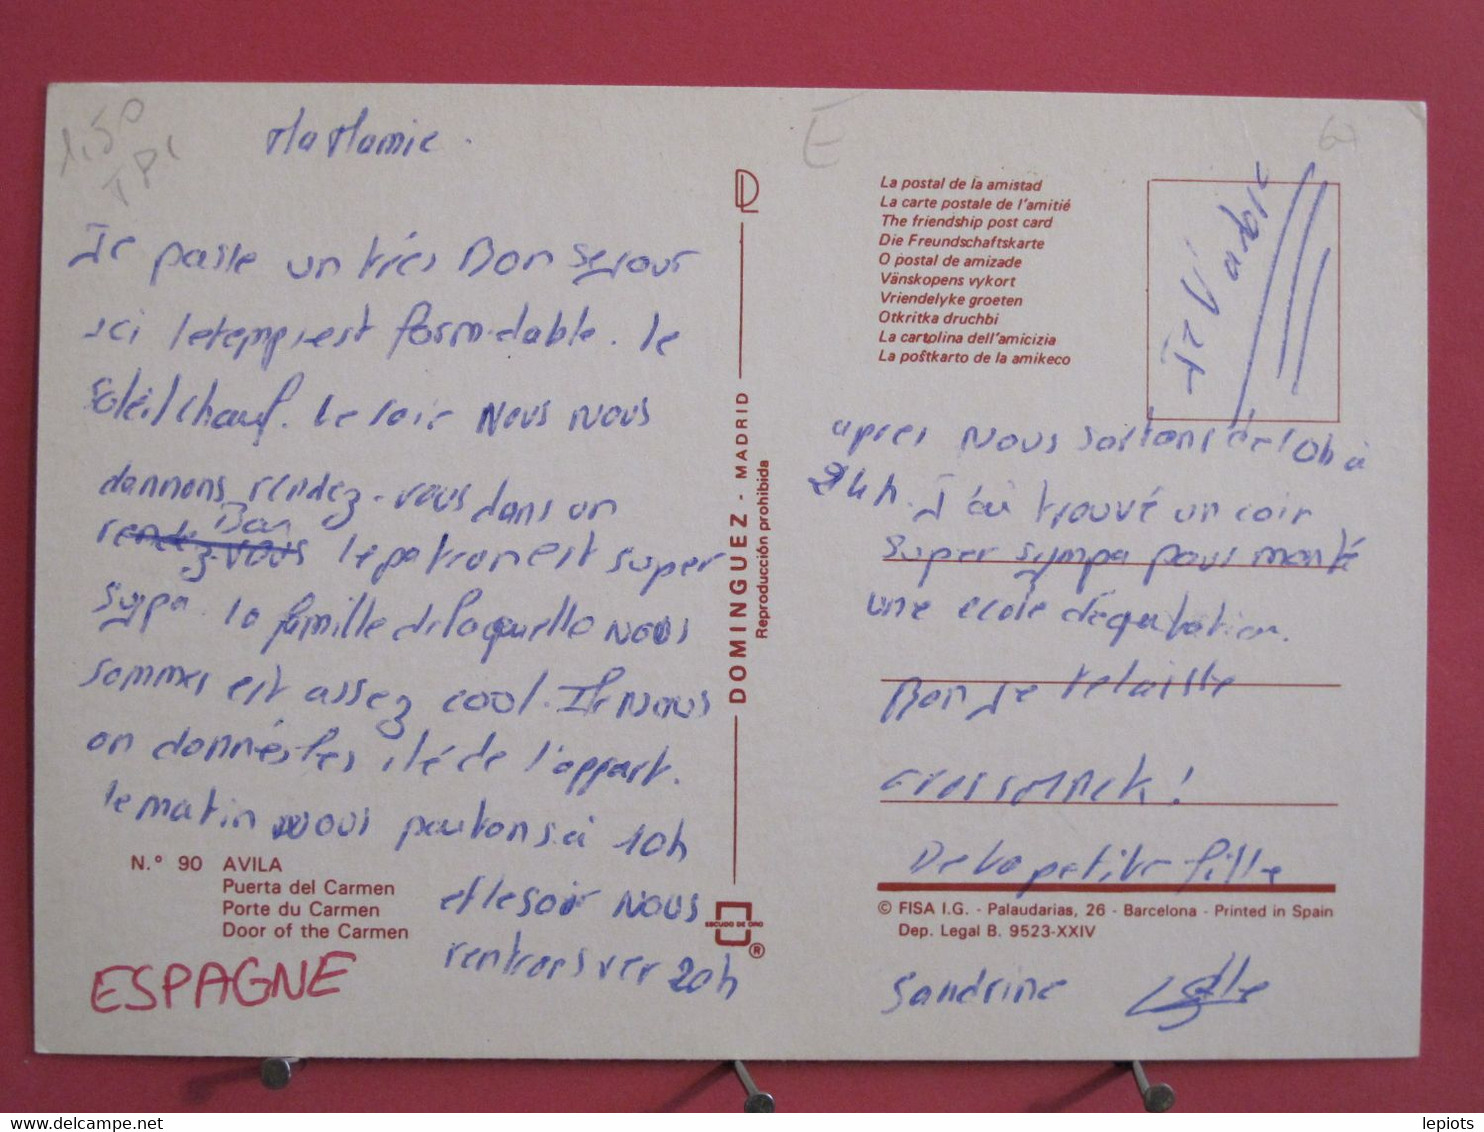 1,50
TPC
Ma Mamie.
Je passe un très Bon séjour
ici le temps est formidable. le
soleil chauf. Le soir Nous Nous
donnons rendez-vous dans un
Bar
rendez-vous le patron est super
sypa. la famille de laquelle Nous
sommes est assez cool. Ils Nous
on données les clé de l'appart.
le matin nous partons à 10h
et le soir Nous
rentrons ver 20h
N.° 90 AVILA
Puerta del Carmen
Porte du Carmen
Door of the Carmen
ESPAGNE
DOMINGUEZ - MADRID
Reproducción prohibida
ESCUDO DE ORO
®
E
La postal de la amistad
La carte postale de l'amitié
The friendship post card
Die Freundschaftskarte
O postal de amizade
Vänskopens vykort
Vriendelyke groeten
Otkritka druchbi
La cartolina dell'amicizia
La poŝtkarto de la amikeco
Je t'adore
apres Nous sortons de 10h à
24h. J'ai trouvé un coin
super sympa pour monté
une ecole d'equitation.
Bon Je te laisse
Gros
De la petite fille
© FISA I.G. - Palaudarias, 26 - Barcelona - Printed in Spain
Dep. Legal B. 9523-XXIV
Sandrine
lepiots